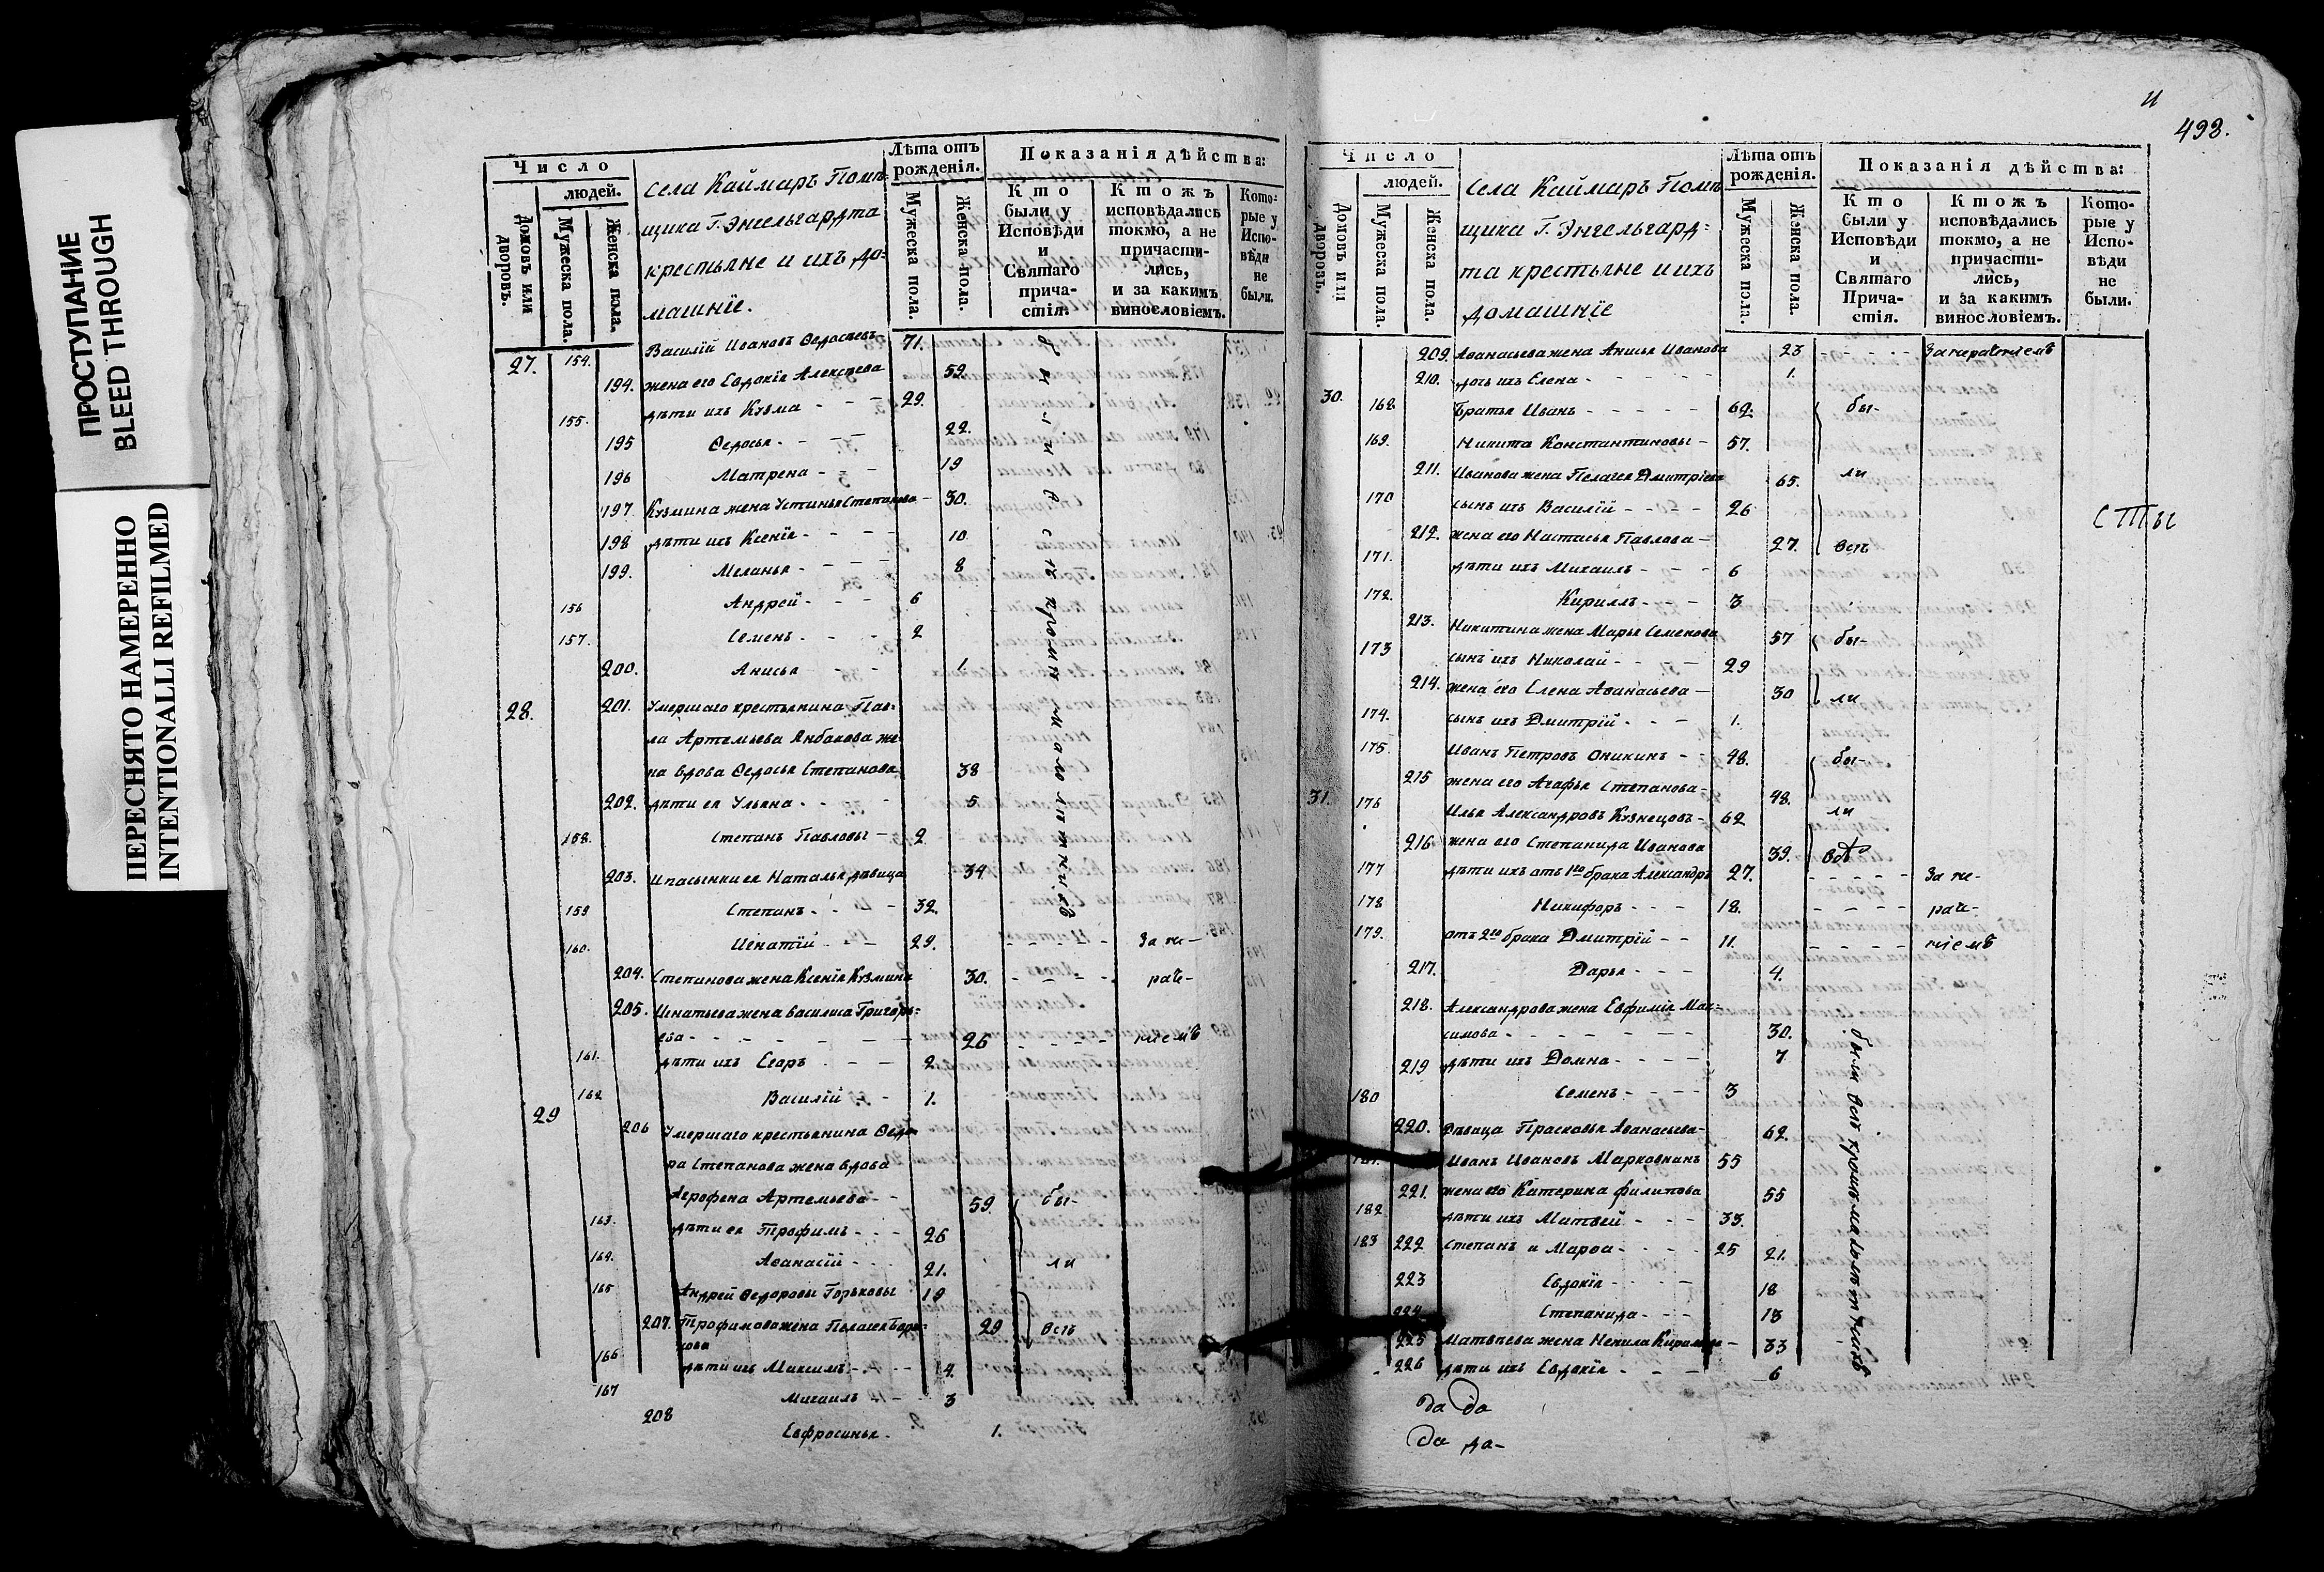 ПРОСТУПАНИЕ
BLEED THROUGH
ПЕРЕСНЯТО НАМЕРЕННО
INTENTIONALLI REFILMED
Число
людей.
Домовъ или дворовъ.
Мужеска пола.
Женска пола.
села Каймаръ Помѣ-
щика Г. Энгельгардта
крестьяне и ихъ до-
машніе.
Лѣта отъ рожденія.
Мужеска пола.
Женска пола.
Показанія дѣйства:
Кто были у Исповѣди и Святаго причастія.
Ктожъ исповѣдались токмо, а не причастились, и за какимъ винословіемъ.
Которые у Исповѣди не были.
27. 154. Василій Ивановъ Ѳедосѣевъ 71.
194. жена его Евдокія Алексѣева 59.
155. дѣти ихъ Кузма - - - 29.
195 Ѳедосья - - - 22.
196 Матрена - - 19
197. Кузмина жена Устинья Степанова - 30.
198 дѣти ихъ Ксенія - - - 10
199. Меланья - - - 8
156 Андрей - - - 6
157. Семенъ - - - 2
200. Анисья - - 1.
28. 201. Умершаго крестьянина Пав-
ла Артемьева жe-
на вдова Ѳедосья Степанова 38
202. дѣти ея Ульяна - - - 5
158. Степанъ Павловы - 2
203. Ипасынки ея Наталья дѣвица 34
159 Степанъ - - - 32.
160. Игнатій - - 29. - - - - За не-
204. Степанова жена Ксенія Кузмина 30. - - - - раче-
205. Игнатьева жена Василиса Григорь-
ева - - - - 26 - - - - ніемъ
161. дѣти ихъ Егоръ - - - 2.
162 Василій - 1.
были всѣ кромѣ малолѣтнихъ
29 206 Умершаго крестьянина Ѳедо-
ра Степанова жена вдова
Артемьева - - 59. бы-
163. дѣти ея Трофимъ - - - 26
164. Аѳанасій - - - 21. ли
165 Андрей Ѳедоровы Горьковы 19
207. Трофимова жена Пелагея 29 всѣ
166 дѣти ихъ Максимъ - - - 4.
167 Михаилъ - - 3
208 Евфросинья - 1.
и
498.
Число
людей.
Домовъ или дворовъ.
Мужеска пола.
Женска пола.
Села Каймаръ Помѣ
щика Г. Энгельгард-
та крестьяне и ихъ
домашніе
Лѣта отъ рожденія.
Мужеска пола.
Женска пола.
Показанія дѣйства:
Кто были у Исповѣди и Святаго Причастія.
Ктожъ исповѣдались токмо, а не причастились, и за какимъ винословіемъ.
Которые у Исповѣди не были.
209. Аѳанасьева жена Анисья Иванова 23 - - - - За нераченіемъ
210. дочь ихъ Елена - - - - - 1.
30. 168. братья Иванъ - - - - - 62. бы-
169. Никита Константиновы - 57.
211. Иванова жена Пелагея Дмитріева 65. ли
170 сынъ ихъ Василій - - - - 26
сты
212. жена его Настасья Павлова - 27. всѣ
171. дѣти ихъ Михаилъ - - - 6
172. Кириллъ - - - 3
213. Никитина жена Марья Семенова 57 бы-
173 сынъ ихъ Николай - - - - 29
214. жена его Елена Аѳанасьева - 30 ли
174. сынъ ихъ Дмитрій - - - 1.
175. Иванъ Петровъ Оникинъ - - 48. бы-
215 жена его Агафья Степанова - 48.
31. 176 Илья Александровъ Кузнецовъ - 62 ли
216 жена его Степанида Иванова 39. всѣ
177 дѣти ихъ отъ 1го брака Александръ 27. - - - - За не-
178 Никифоръ - - - 18. - - - - раче-
179. отъ 2го брака Дмитрій - - 11. - - - - ніемъ
217. Дарья - - - 4.
218. Александрова жена Евфимія Мак-
симова - - - - - 30.
219 дѣти ихъ Домна - - - - 7
180 Семенъ - - - - 3
220. Дѣвица Прасковья Аѳанасьева - 62.
181. Иванъ Ивановъ Марковнинъ 55
221. жена его Катерина Филипова 55
182 дѣти ихъ Матвей - - - 33.
183 222 Степанъ и Марѳа - - - - 25 21.
223 Евдокія - - - - 18
224 Степанида - - - 13
225 Матвѣева жена Ненила Кирилова - 33
226 дѣти ихъ Евдокія - - - 6
были всѣ кромѣ малолѣтнихъ
да да
да да-